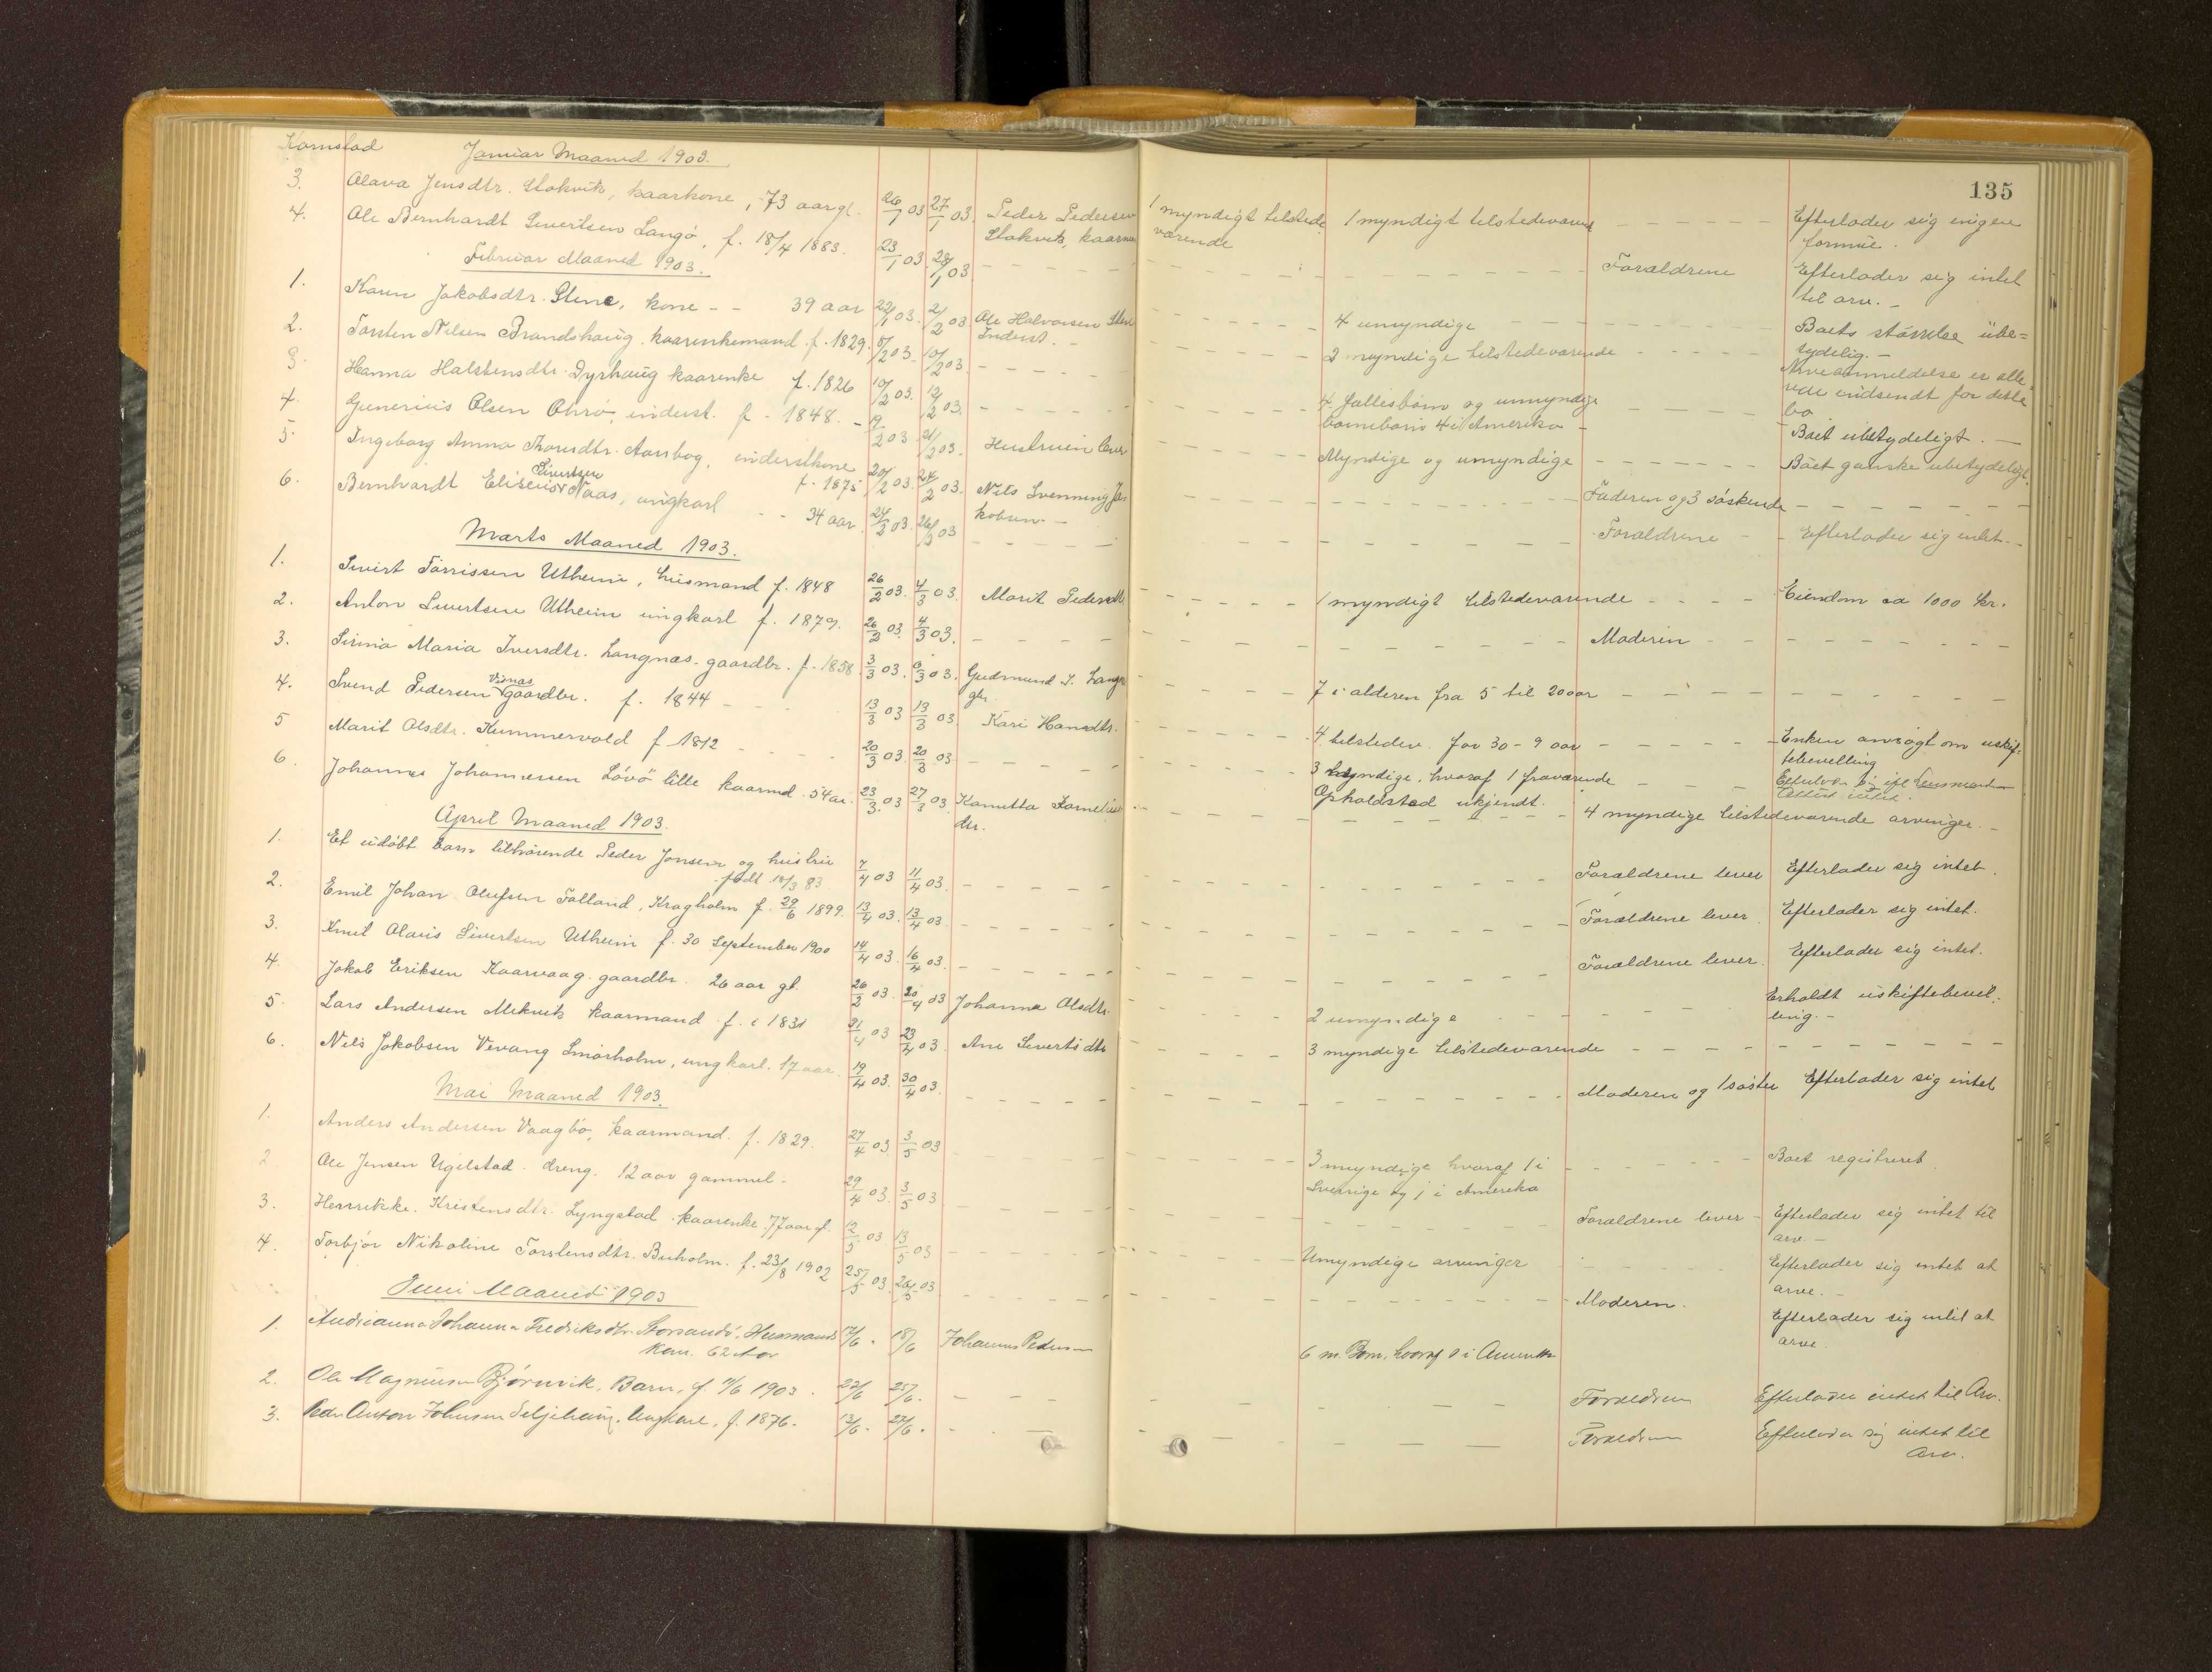 135
Kornstad Januar Maaned 1903.
3. Olava Jensdtr. Stokvik, kaarkone, 73 aar gl. 26/1 03 27/1 03. Peder Pedersen 1 myndigt tilstede 1 myndigt tilstedeværend - - - - Efterlader sig ingen
Stokvik, kaarma værende formue.
4. Ole Bernhardt Sivertsen Langö, f. 18/4 1883. 23/1 03 28/1 03 - - - - Forældrene Efterlader sig intet
til arv. -
Februar Maaned 1903.
1. Karen Jakobsdtr. Stene, kone - - 39 aar 22/1 03. 2/2 03 Ole Halvorsen Stene 4 umyndige - - - - Boets störrelse übe=
Inderst. - tydelig. -
2. Torsten Nilsen Brandshaug. kaarenkemand. f. 1829. 6/2 03 10/2 03. - - - - 2 myndige tilstedeværende - - - Arveanmeldelse er alle=
rede indsendt for dette
bo
3. Hanna Halstensdtr. Dyrhaug kaarenke f. 1826 10/2 03. 12/2 03. - - - - 4 fællesbörn og umyndige - - - - Boet ubetydeligt. -
barnebörn 4 i Amerika -
4. Gunerius Olsen Ohrö, inderst. f. 1848. - 19/2 03 21/2 03. Hustruen lever Myndige og umyndige - - - - Boet ganske ubetydeligt.
5. Ingeborg Anna Thoresdtr. Aarsbog, inderstkone
f. 1875 20/2 03. 24/2 03. Nils Svenning Ja - - - - Faderen og 3 söskende - - - -
kobsen -
Sivertsen
6. Bernhardt Eliseus Naas, ungkarl - - 34 aar 24/2 03. 26/2 03 - - - - Forældrene - - Efterlader sig intet. -
Marts Maaned 1903.
1. Sivert Tørrissen Utheim, husmand f. 1848 26/2 03. 4/3 03. Marit Pedersdtr - - - - 1 myndigt tilstedeværende - - - - Eiendom ca 1000 kr.
2. Anton Sivertsen Utheim ungkarl f. 1879. 26/2 03. 4/3 03. - - - - Moderen - - - -
3. Sirina Maria Iversdtr. Langnæs. gaardbr. f. 1858. 3/3 03. 6/3 03. Gudmund J. Langn 7 i alderen fra 5 til 20 aar - - - -
gbr.
Visnæs
4. Svend Pedersen gaardbr. f. 1844 - - - - 13/3 03 13/3 03. Kari Hansdtr. - - - - 4 tilstedev. fra 30 - 9 aar - - - - Enken ansøgt om uskif-
tebevilling
5 Marit Olsdtr. Kummervold f 1812 - - - - 20/3 03. 20/3 03 - - - - 3 myndige, hvoraf 1 fraværende - - - Efterlader sig ifl. Lensmanden
Opholdstad ukjendt.
6. Johannes Johannessen Lövö lille kaarmd. 54 aar. 23/3 03 27/3 03 Kanutta Kornelius - - - - 4 myndige tilstedeværende arvinger. -
dtr.
April Maaned 1903.
1. Et udöbt barn tilhörende Peder Jonsen og hustru
födt 10/3 83 7/4 03 11/4 03. - - - - Forældrene lever Efterlader sig intet.
2. Emil Johan Olufsen Folland, Kragholm f. 29/6 1899. 13/4 03. 13/4 03. - - - - Forældrene lever Efterlader sig intet.
3. Knut Olaus Sivertsen Utheim f. 30 September 1900 14/4 03. 16/4 03. - - - - Forældrene lever Efterlader sig intet.
4. Jakob Eriksen Kaarvaag. gaardbr. 26 aar gl. 26/2 03. 20/4 03 Johanna Olsdtr. - - - - 2 umyndige - - - - Erholdt uskiftebevil-
ling. -
5. Lars Andersen Mekvik kaarmand f. i 1831 21/4 03 23/4 03 Ane Sivertsdtr - - - - 3 myndige tilstedeværende - - - -
6. Nils Jakobsen Vevang Smörholm, ungkarl. 17 aar. 19/4 03. 30/4 03. - - - - Moderen og 1 söster Efterlader sig intet
Mai Maaned 1903.
1. Anders Andersen Vaagbö, kaarmand. f. 1829. 27/4 03 3/5 03 - - - - 3 myndige hvoraf 1 i - - - - Boet registreret
Sverige og 1 i Amerika
2 Ole Jensen Ugelstad. dreng. 12 aar gammel - 29/4 03. 3/5 03 - - - - Forældrene lever - Efterlader sig intet til
arv. -
3. Henrikke Kristensdtr. Lyngstad kaarenke. 77 aar gl. 12/5 03 13/5 03 - - - - Umyndige arvinger - - - - Efterlader sig intet at
arve. -
4. Torbjör Nikoline Torstensdtr. Buholm. f. 23/8 1902 25/5 03 26/5 03 - - - - Moderen. Efterlader sig intet at
arve.
Juni Maaned 1903
1. Andrianna Johanna Fredriksdtr. Storsandö, Husmands 17/6 . 18/6 Johannes Pedersen 6 m. Børn, hvoraf 1 i Amerika
kone. 62 Aar
2. Ole Magnussen Bjørnvik, Barn, f. 11/6 1903. 22/6 25/6. - - - - Forældrene Efterlader intet til Arv.
3. Peder Anton Johnsen Seljehaug. Ungkarl, f. 1876. 13/6. 27/6. - - - - Forældrene Efterlader sig intet til
Arv.